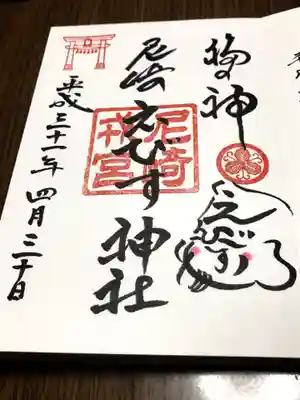 福の神
えびす
尼崎えびす神社
尼崎戎宮
平成三十一年四月三十日